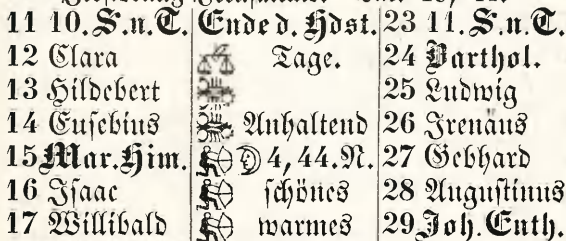 11 10. S. n. T. Ende d. Hdst. 23 11. S. n. T.
12 Clara Tage. 24 Barthol.
13 Hildebert 25 Ludwig
14 Eusebius Anhaltend 26 Irenäus
15 Mar. Him. 4, 44. N. 27 Gebhard
16 Isaac schönes 28 Augustinus
17 Willibald warmes 29 Joh. Enth.